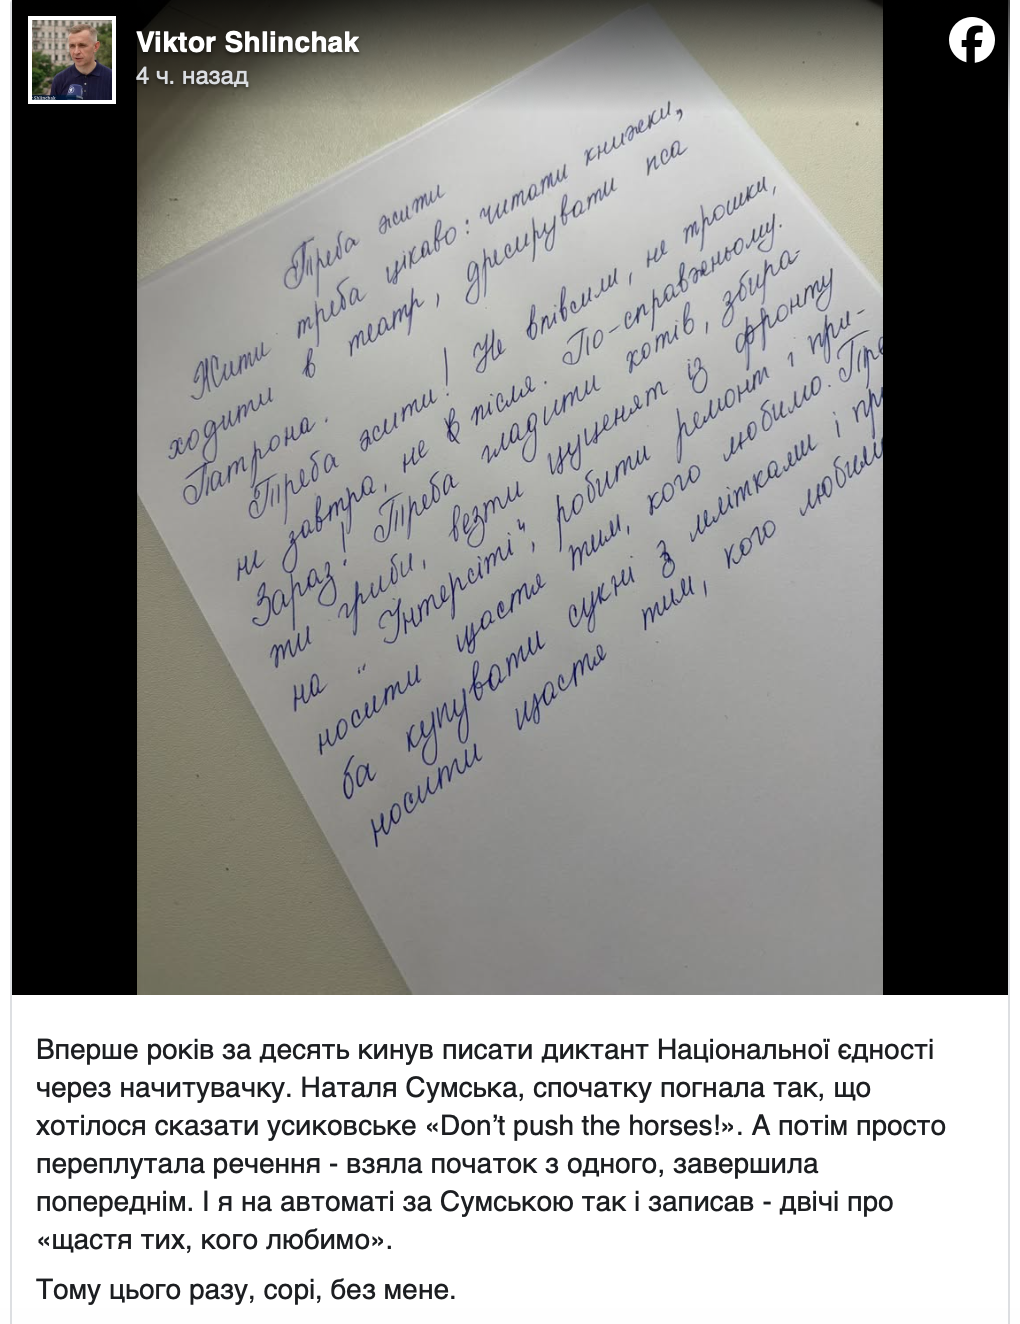 Viktor Shlinchak
4 ч. назад
Треба жити
Жити треба цікаво: читати книжки,
ходити в театр, дресирувати пса
Патрона.
Треба жити! Не впівсили, не трошки,
не завтра, не в після. По-справжньому.
Зараз! Треба гладити котів, збира-
ти гриби, везти цуценят із фронту
на "Інтерсіті", робити ремонт і при-
носити щастя тим, кого любимо. Тре
ба купувати сукні з лелітками і пр
носити щастя тим, кого любим
Вперше років за десять кинув писати диктант Національної єдності
через начитувачку. Наталя Сумська, спочатку погнала так, що
хотілося сказати усиковське «Don’t push the horses!». А потім просто
переплутала речення - взяла початок з одного, завершила
попереднім. І я на автоматі за Сумською так і записав - двічі про
«щастя тих, кого любимо».
Тому цього разу, сорі, без мене.